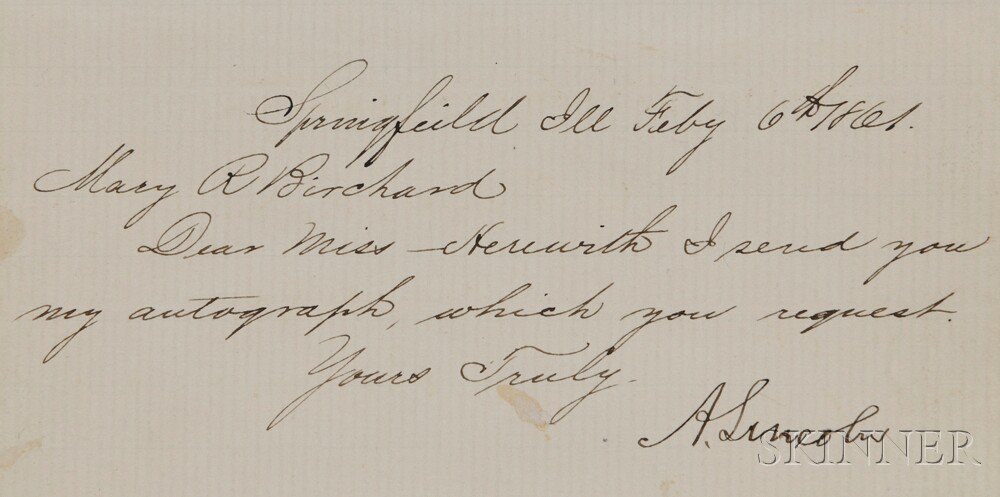 Springfeild Ill Feby 6th 1861.
Mary R Birchard
Dear Miss - Herewith I send you
my autograph, which you request.
Yours Truly.
A. Lincoln
SKINNER